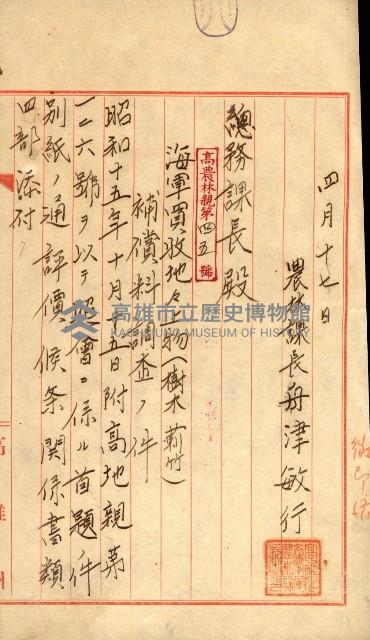 四月十七日
農林課長舟津敏行
總務課長殿
高農林親第四五號
海軍買收地々上物(樹木莿竹)
補償料調查ノ件
昭和十五年十月十五日附高地親第
一二六號ヲ以テ照會ニ係ル首題ノ件
別紙ノ通評價候条関係書類
四部添付
高雄州
高雄市立歷史博物館
KAOHSIUNG MUSEUM OF HISTORY